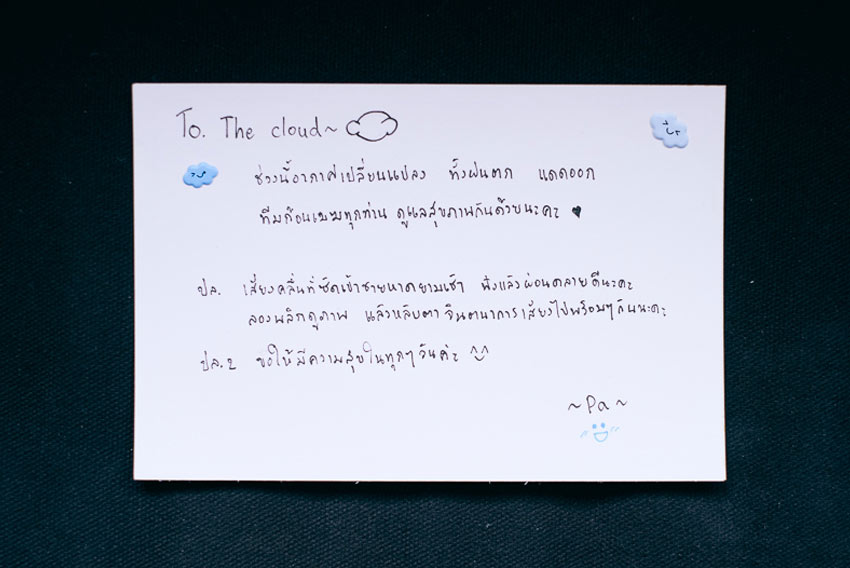 To. The cloud~
ช่วงนี้อากาศเปลี่ยนแปลง ทั้งฝนตก แดดออก
ทีมก้อนเมฆทุกท่าน ดูแลสุขภาพกันด้วยนะคะ ♥
ปล. เสียงคลื่นที่ซัดเข้าชายหาดยามเช้า ฟังแล้วผ่อนคลายดีนะคะ
ลองพลิกดูภาพ แล้วหลับตา จินตนาการเสียงไปพร้อมๆกันนะคะ
ปล.2 ขอให้มีความสุขในทุกๆวันค่ะ
~Pa~